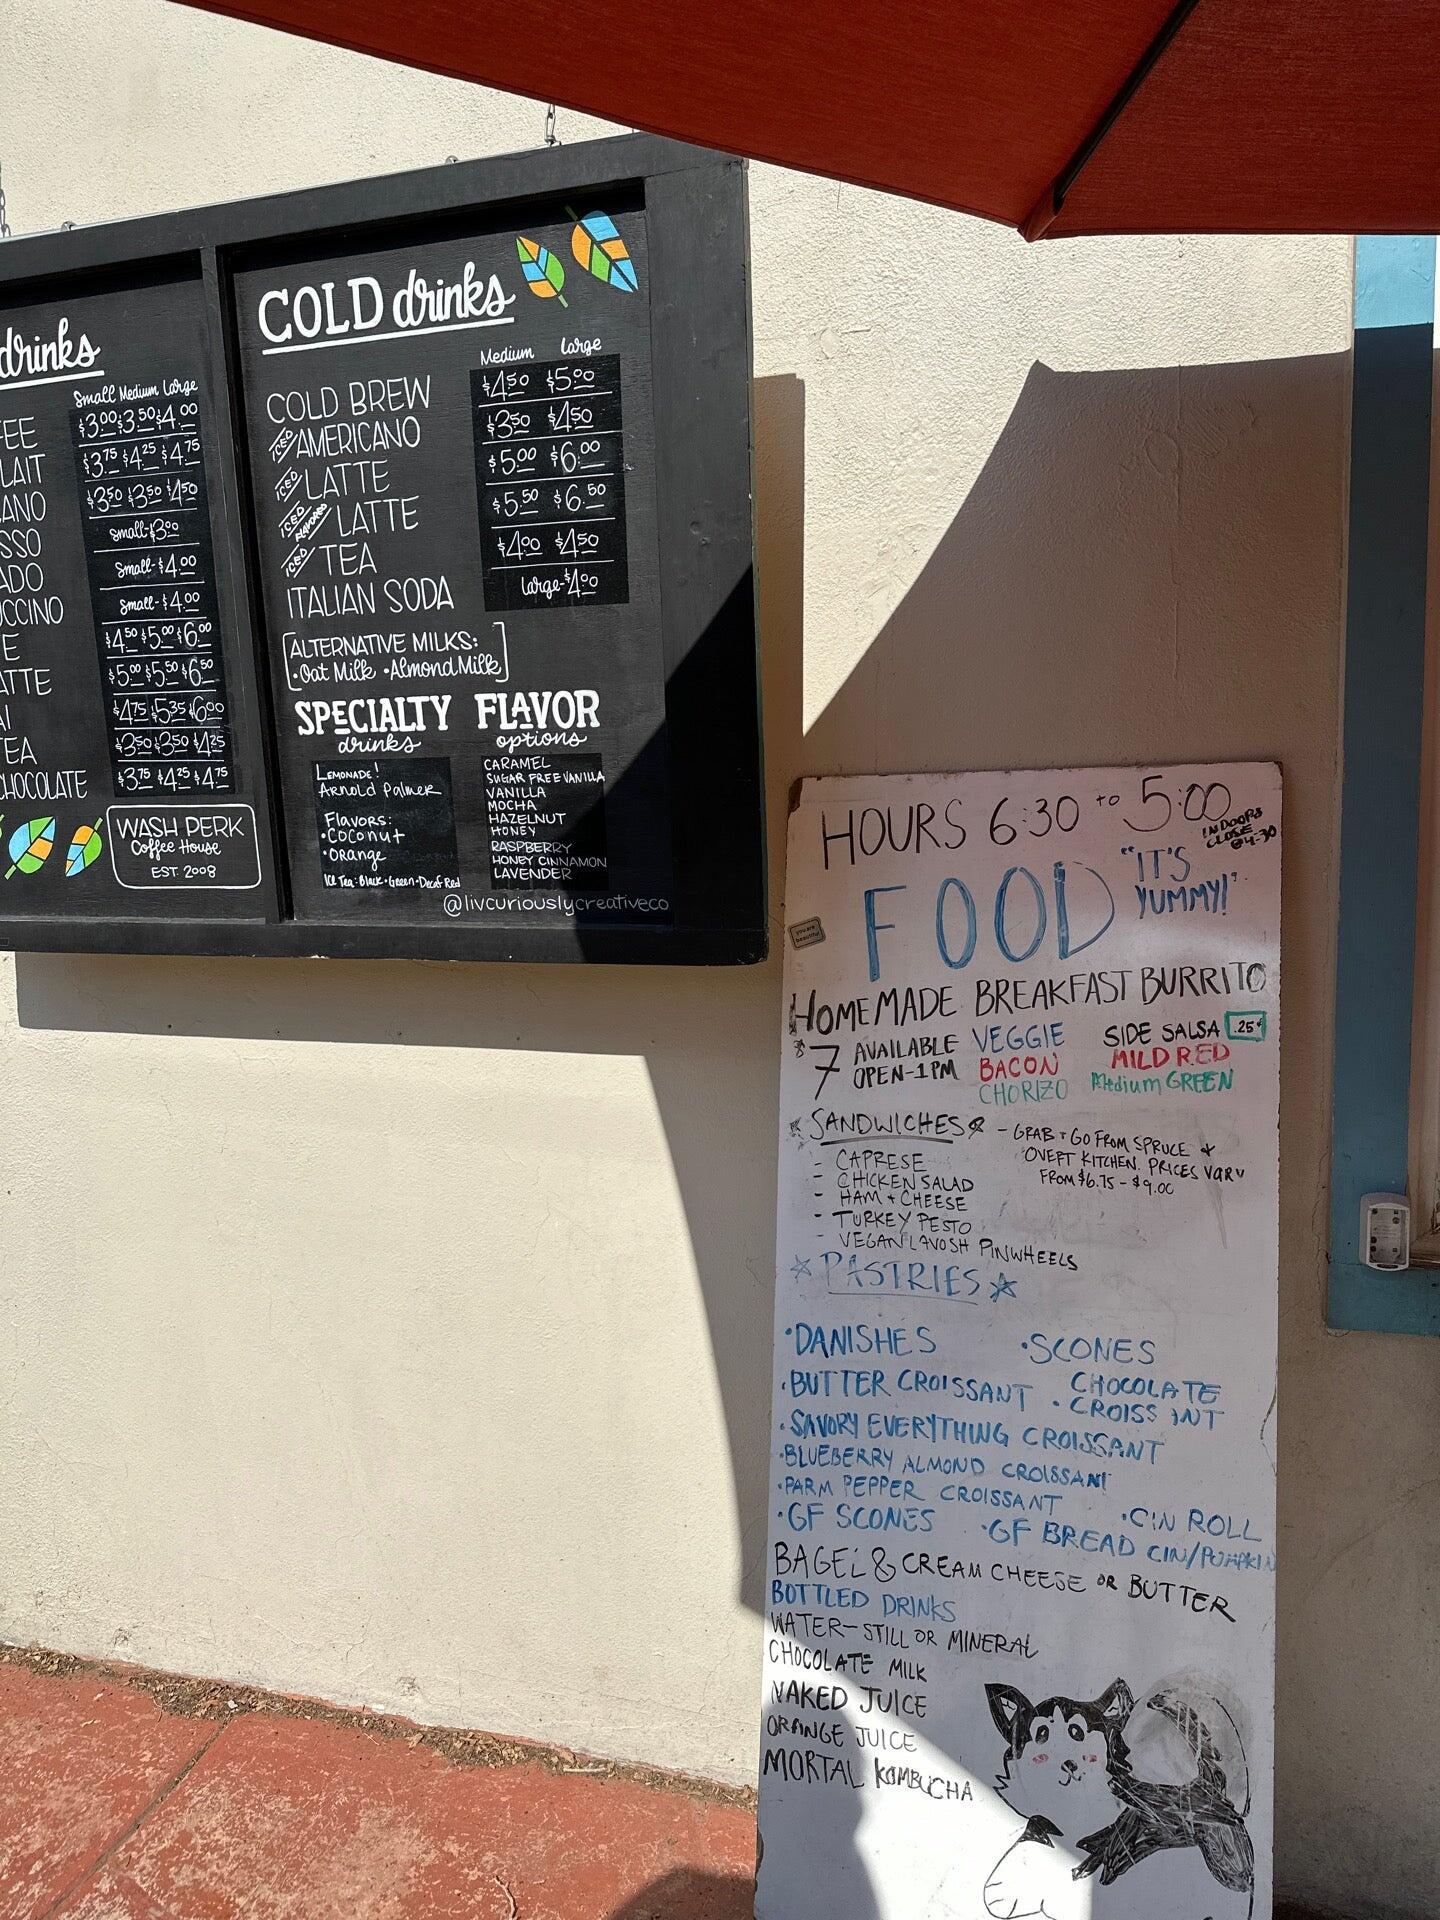 drinks
Small Medium Large
FEE $3.00 $3.50 $4.00
LAIT $3.75 $4.25 $4.75
ANO $3.50 $3.50 $4.50
SSO small-$3.00
ADO Small-$4.00
UCCINO Small-$4.00
E $4.50 $5.00 $6.00
ATTE $5.00 $5.50 $6.50
AI $4.75 $5.35 $6.00
TEA $3.50 $3.50 $4.25
CHOCOLATE $3.75 $4.25 $4.75
WASH PERK
Coffee House
EST. 2008
COLD drinks
Medium Large
COLD BREW $4.50 $5.00
ICED AMERICANO $3.50 $4.50
ICED LATTE $5.00 $6.00
ICED FLAVORED LATTE $5.50 $6.50
ICED TEA $4.00 $4.50
ITALIAN SODA large-$4.00
ALTERNATIVE MILKS:
•Oat Milk •Almond Milk
SPECIALTY
drinks
LEMONADE!
Arnold Palmer
Flavors:
•Coconut
•Orange
Ice Tea: Black•Green•Decaf Red
FLAVOR
options
CARAMEL
SUGAR FREE VANILLA
VANILLA
MOCHA
HAZELNUT
HONEY
RASPBERRY
HONEY CINNAMON
LAVENDER
@livcuriouslycreativeco
HOURS 6:30 to 5:00
INDOORS
CLOSE
@4:30
FOOD
"IT'S
YUMMY!"
you are
beautiful
HOMEMADE BREAKFAST BURRITO
$7 AVAILABLE
OPEN-1PM
VEGGIE
BACON
CHORIZO
SIDE SALSA .25¢
MILD RED
Medium GREEN
SANDWICHES
- CAPRESE
- CHICKEN SALAD
- HAM + CHEESE
- TURKEY PESTO
- VEGAN LAVOSH PINWHEELS
- GRAB + GO FROM SPRUCE +
OVEPT KITCHEN. PRICES VARY
FROM $6.75 - $9.00
PASTRIES
•DANISHES •SCONES
•BUTTER CROISSANT
•CHOCOLATE
CROISSANT
•SAVORY EVERYTHING CROISSANT
•BLUEBERRY ALMOND CROISSANT
•PARM PEPPER CROISSANT
•CIN ROLL
•GF SCONES •GF BREAD CIN/PUMPKIN
BAGEL & CREAM CHEESE OR BUTTER
BOTTLED DRINKS
WATER-STILL OR MINERAL
CHOCOLATE MILK
NAKED JUICE
ORANGE JUICE
MORTAL KOMBUCHA